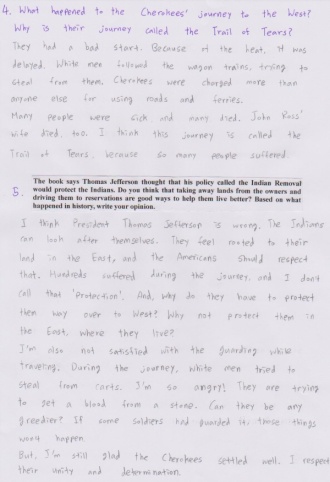 4. What happened to the Cherokees' journey to the West?
Why is their journey called the Trail of Tears?
They had a bad start. Because of the heat, it was
delayed. White men followed the wagon trains, trying to
steal from them. Cherokees were charged more than
anyone else for using roads and ferries.
Many people were sick and many died. John Ross'
wife died, too. I think this journey is called the
Trail of Tears, because so many people suffered.
5. The book says Thomas Jefferson thought that his policy called the Indian Removal
would protect the Indians. Do you think that taking away lands from the owners and
driving them to reservations are good ways to help them live better? Based on what
happened in history, write your opinion.
I think President Thomas Jefferson is wrong. The Indians
can look after themselves. They feel rooted to their
land in the East, and the Americans should respect
that. Hundreds suffered during the journey, and I don't
call that 'protection'. And, why do they have to protect
them way over to West? Why not protect them in
the East, where they live?
I'm also not satisfied with the guarding while
traveling. During the journey, white men tried to
steal from carts. I'm so angry! They are trying
to get a blood from a stone. Can they be any
greedier? If some soldiers had guarded it, those things
won't happen.
But, I'm still glad the Cherokees settled well. I respect
their unity and determination.